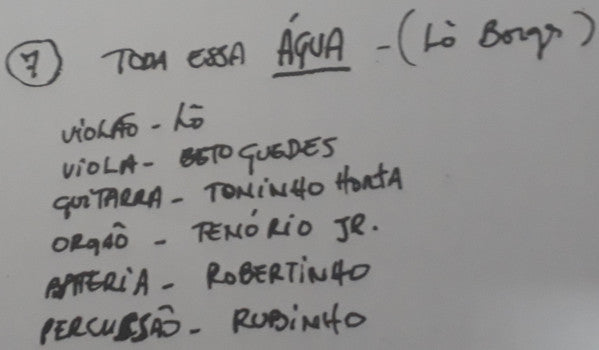 7 TODA ESSA ÁGUA - (Lô Borges)
VIOLÃO - Lô
VIOLA - BETO GUEDES
GUITARRA - TONINHO HORTA
ORGÃO - TENÓRIO JR.
BATERIA - ROBERTINHO
PERCUSSÃO - RUBINHO